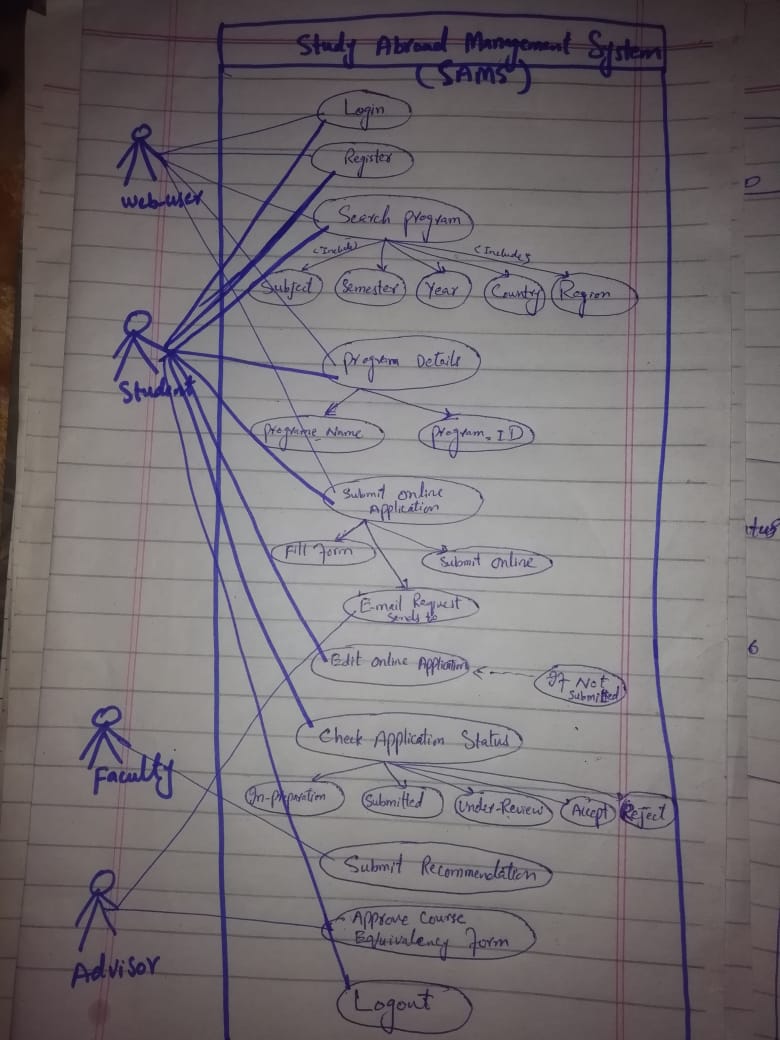 Study Abroad Management System
(SAMS)
Login
Register
web-user
Search program
<Include>
<Includes
Subject
Semester
Year
Country
Region
Student
Program Details
Programe_Name
Program_ID
Submit online
Application
Fill Form
Submit online
E-mail Request
sends to
Edit online Application
If Not
Submitted
Check Application Status
Faculty
In-preparation
Submitted
Under-Review
Accept
Reject
Submit Recommendation
Approve Course
Equivalency Form
Advisor
Logout
D
atus
6